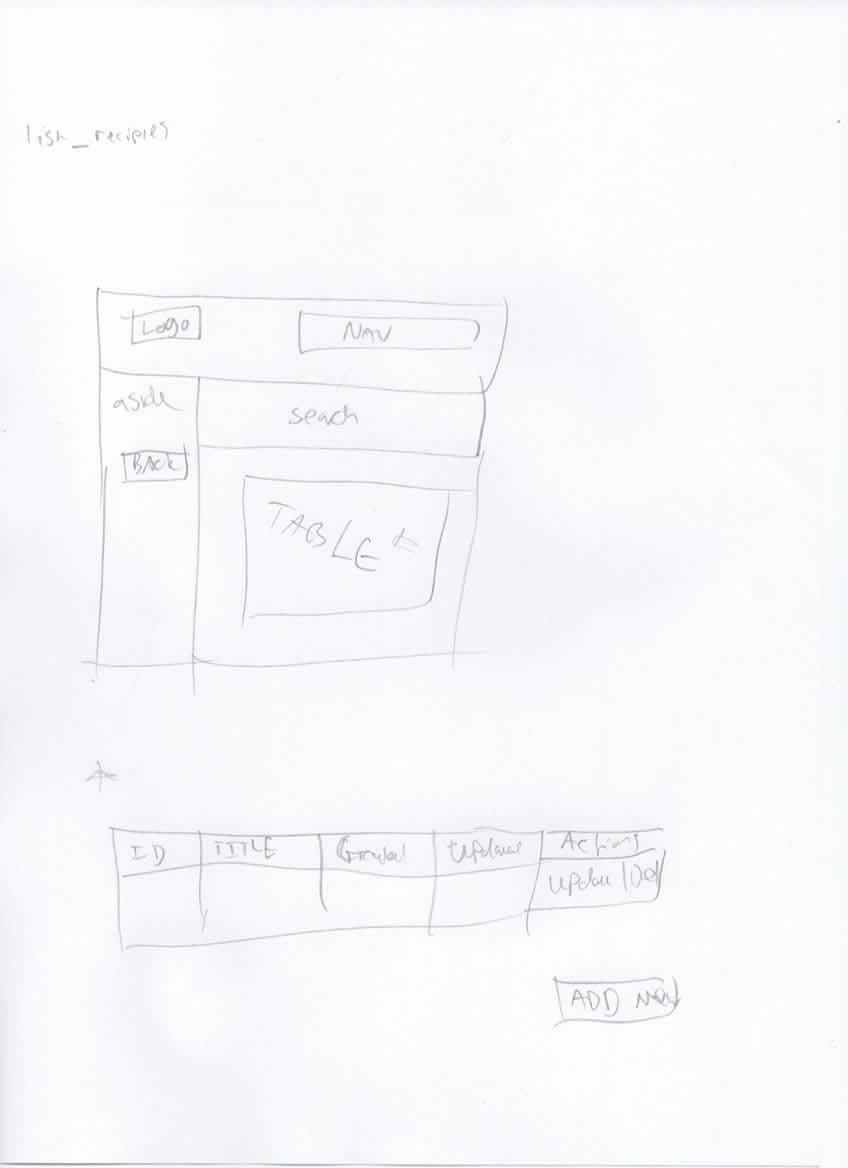 list_recipies
Logo
NAV
aside
seach
BACK
TABLE *
*
ID TITLE Created Updated Actions
Update | Del
ADD New